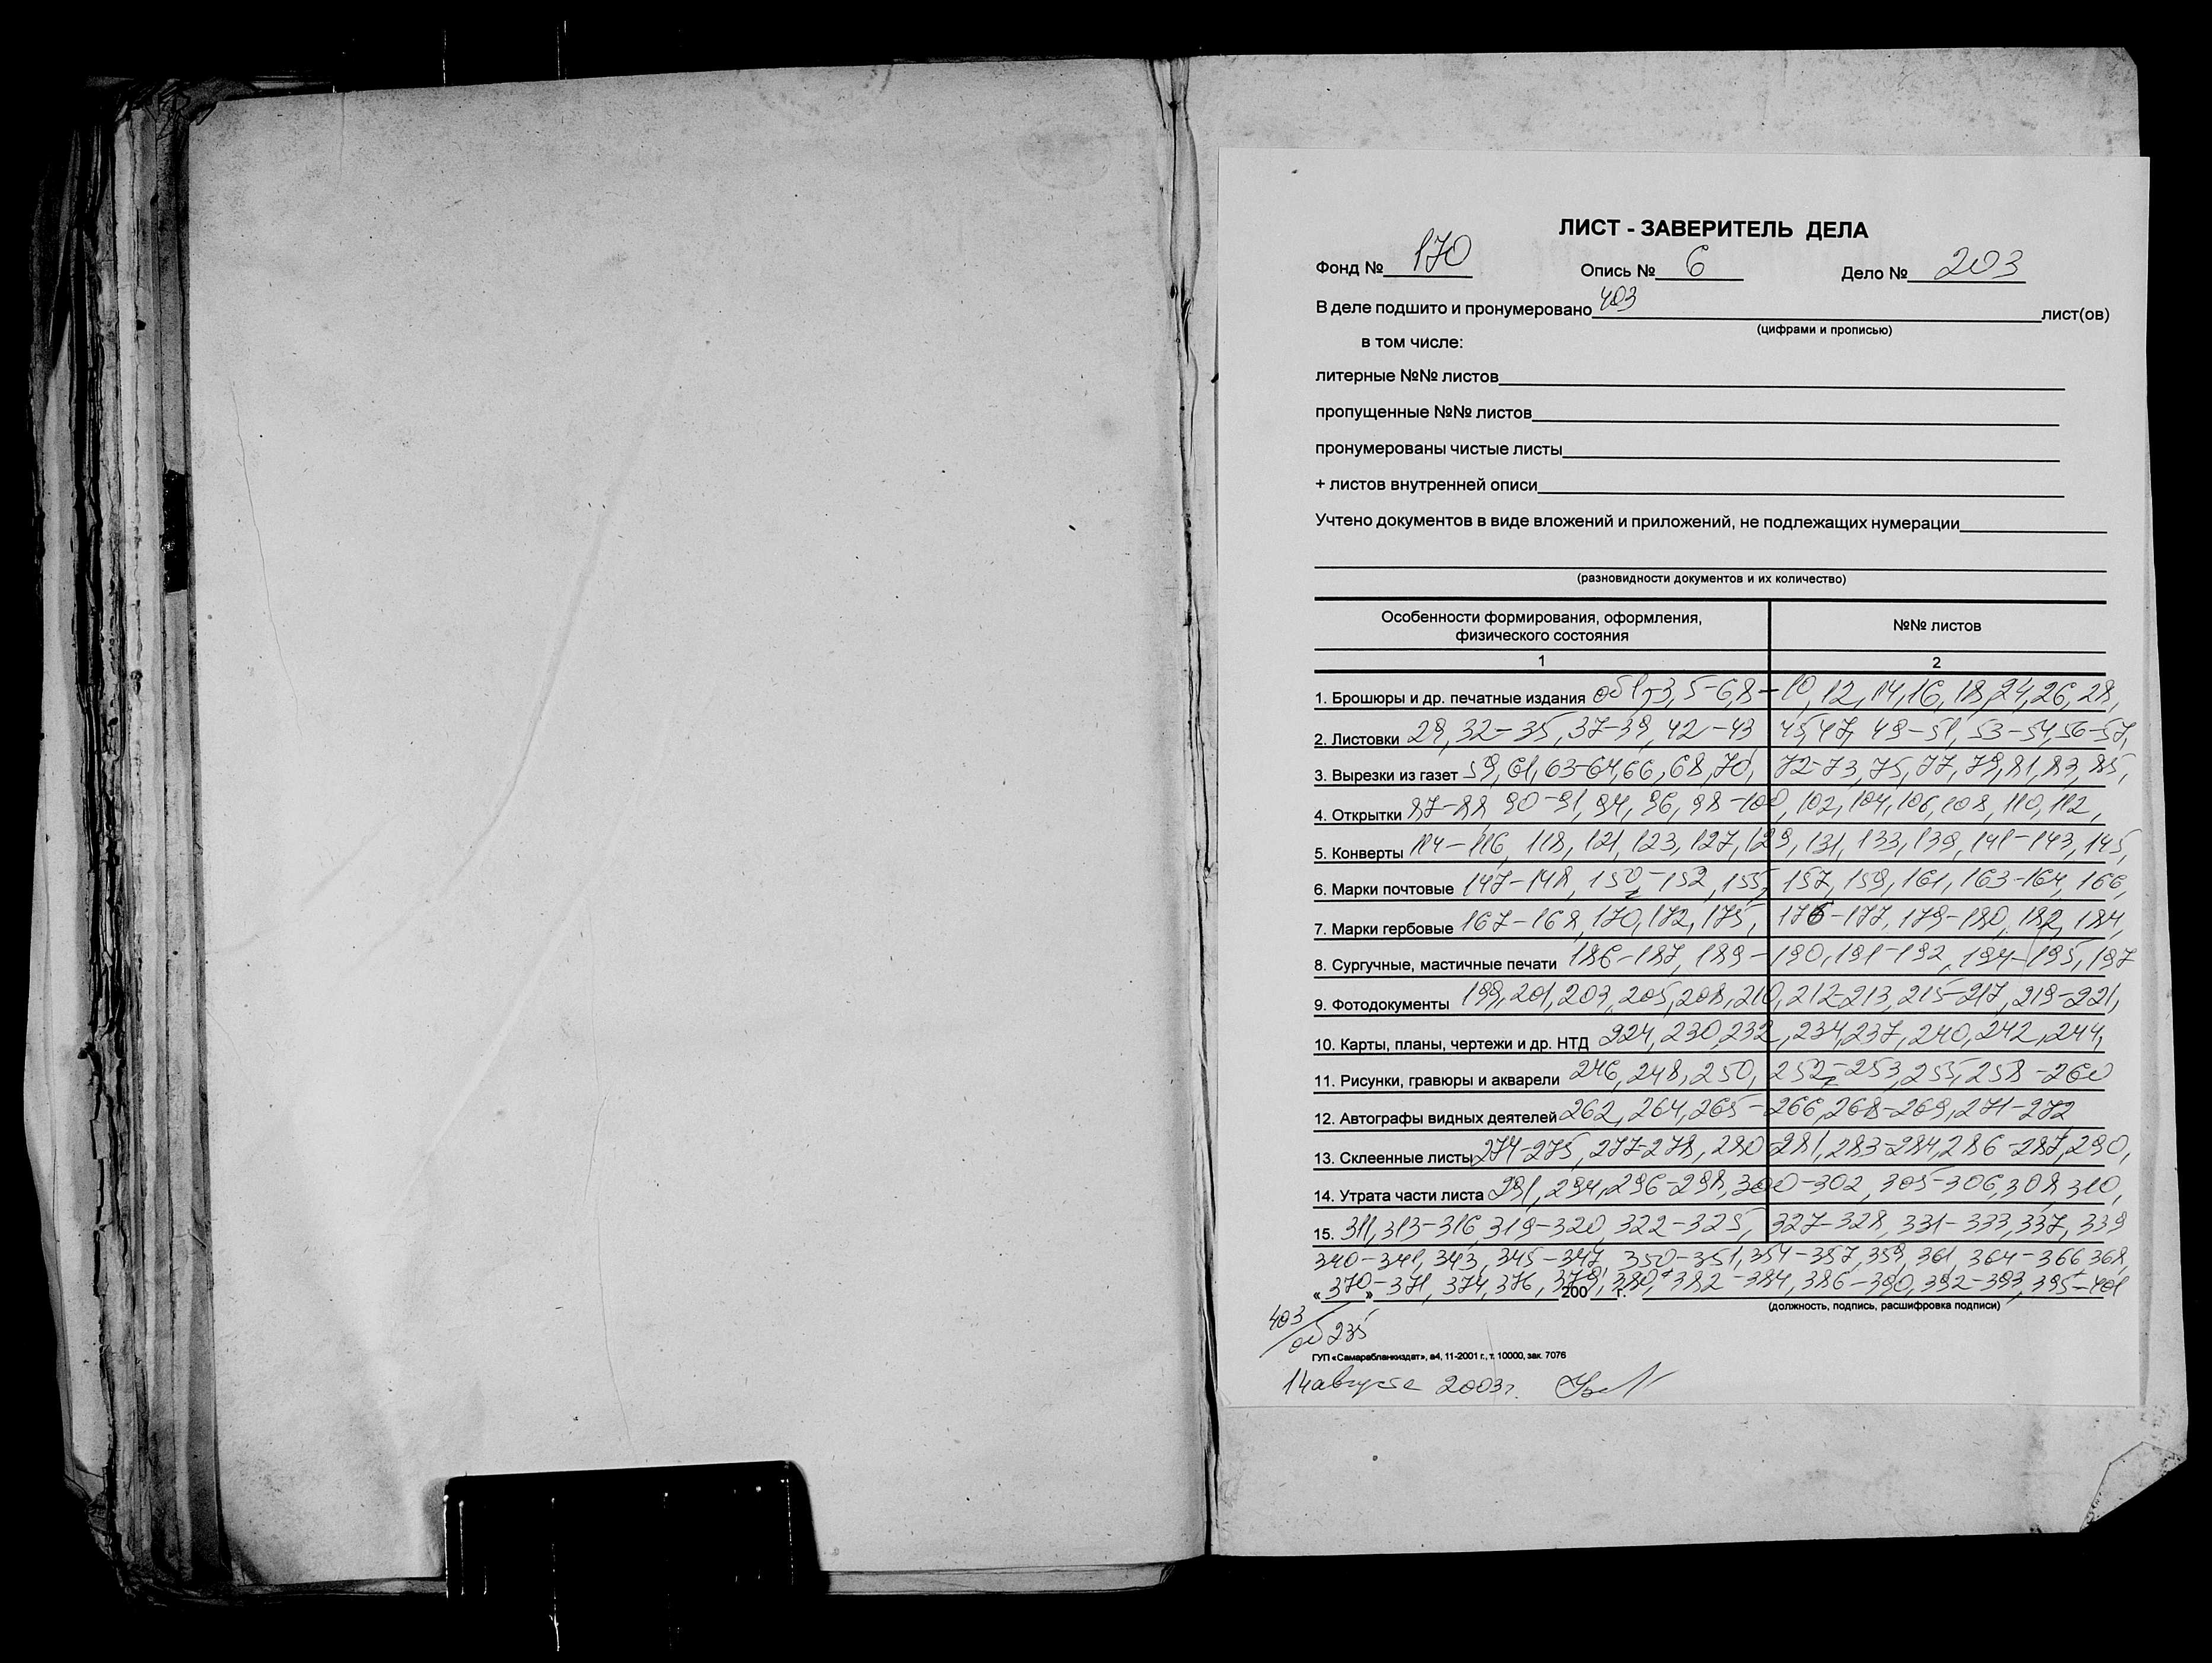 ЛИСТ - ЗАВЕРИТЕЛЬ ДЕЛА
Фонд № 170 Опись № 6 Дело № 203
В деле подшито и пронумеровано 403 лист(ов)
(цифрами и прописью)
в том числе:
литерные №№ листов
пропущенные №№ листов
пронумерованы чистые листы
+ листов внутренней описи
Учтено документов в виде вложений и приложений, не подлежащих нумерации
(разновидности документов и их количество)
Особенности формирования, оформления, №№ листов
физического состояния
1 2
1. Брошюры и др. печатные издания об 1, 3, 5-6, 8-10, 12, 14, 16, 18, 24, 26, 28,
2. Листовки 29, 32-35, 37-39, 42-43 45, 47, 49-51, 53-54, 56-57,
3. Вырезки из газет 59, 61, 63-64, 66, 68, 70, 72-73, 75, 77, 79, 81, 83, 85,
4. Открытки 87-88, 90-91, 94, 96, 98-100, 102, 104, 106, 108, 110, 112,
5. Конверты 114-116, 118, 121, 123, 127, 129, 131, 133, 139, 141-143, 145,
6. Марки почтовые 147-148, 150-152, 155, 157, 159, 161, 163-164, 166,
7. Марки гербовые 167-168, 170, 172, 175, 176-177, 179-180, 182, 184,
8. Сургучные, мастичные печати 186-187, 189-190, 191-192, 194-195, 197
9. Фотодокументы 199, 201, 203, 205, 208, 210, 212-213, 215-217, 219-221,
10. Карты, планы, чертежи и др. НТД 224, 230, 232, 234, 237, 240, 242, 244,
11. Рисунки, гравюры и акварели 246, 248, 250, 252-253, 255, 258-260
12. Автографы видных деятелей 262, 264, 265-266, 268-269, 271-272
13. Склеенные листы 274-275, 277-278, 280-281, 283-284, 286-287, 290,
14. Утрата части листа 291, 294, 296-298, 300-302, 305-306, 308, 310,
15. 311, 313-316, 319-320, 322-325, 327-328, 331-333, 337, 339
340-341, 343, 345-347, 350-351, 354-357, 359, 361, 364-366, 368,
« 370»-371, 374, 376, 379, 380, 382-384, 386-390, 392-393, 395-401
200 г.
(должность, подпись, расшифровка подписи)
403/об 235
ГУП «Самарабланкиздат», а4, 11-2001 г., т. 10000, зак. 7076
14 августа 2003 г.